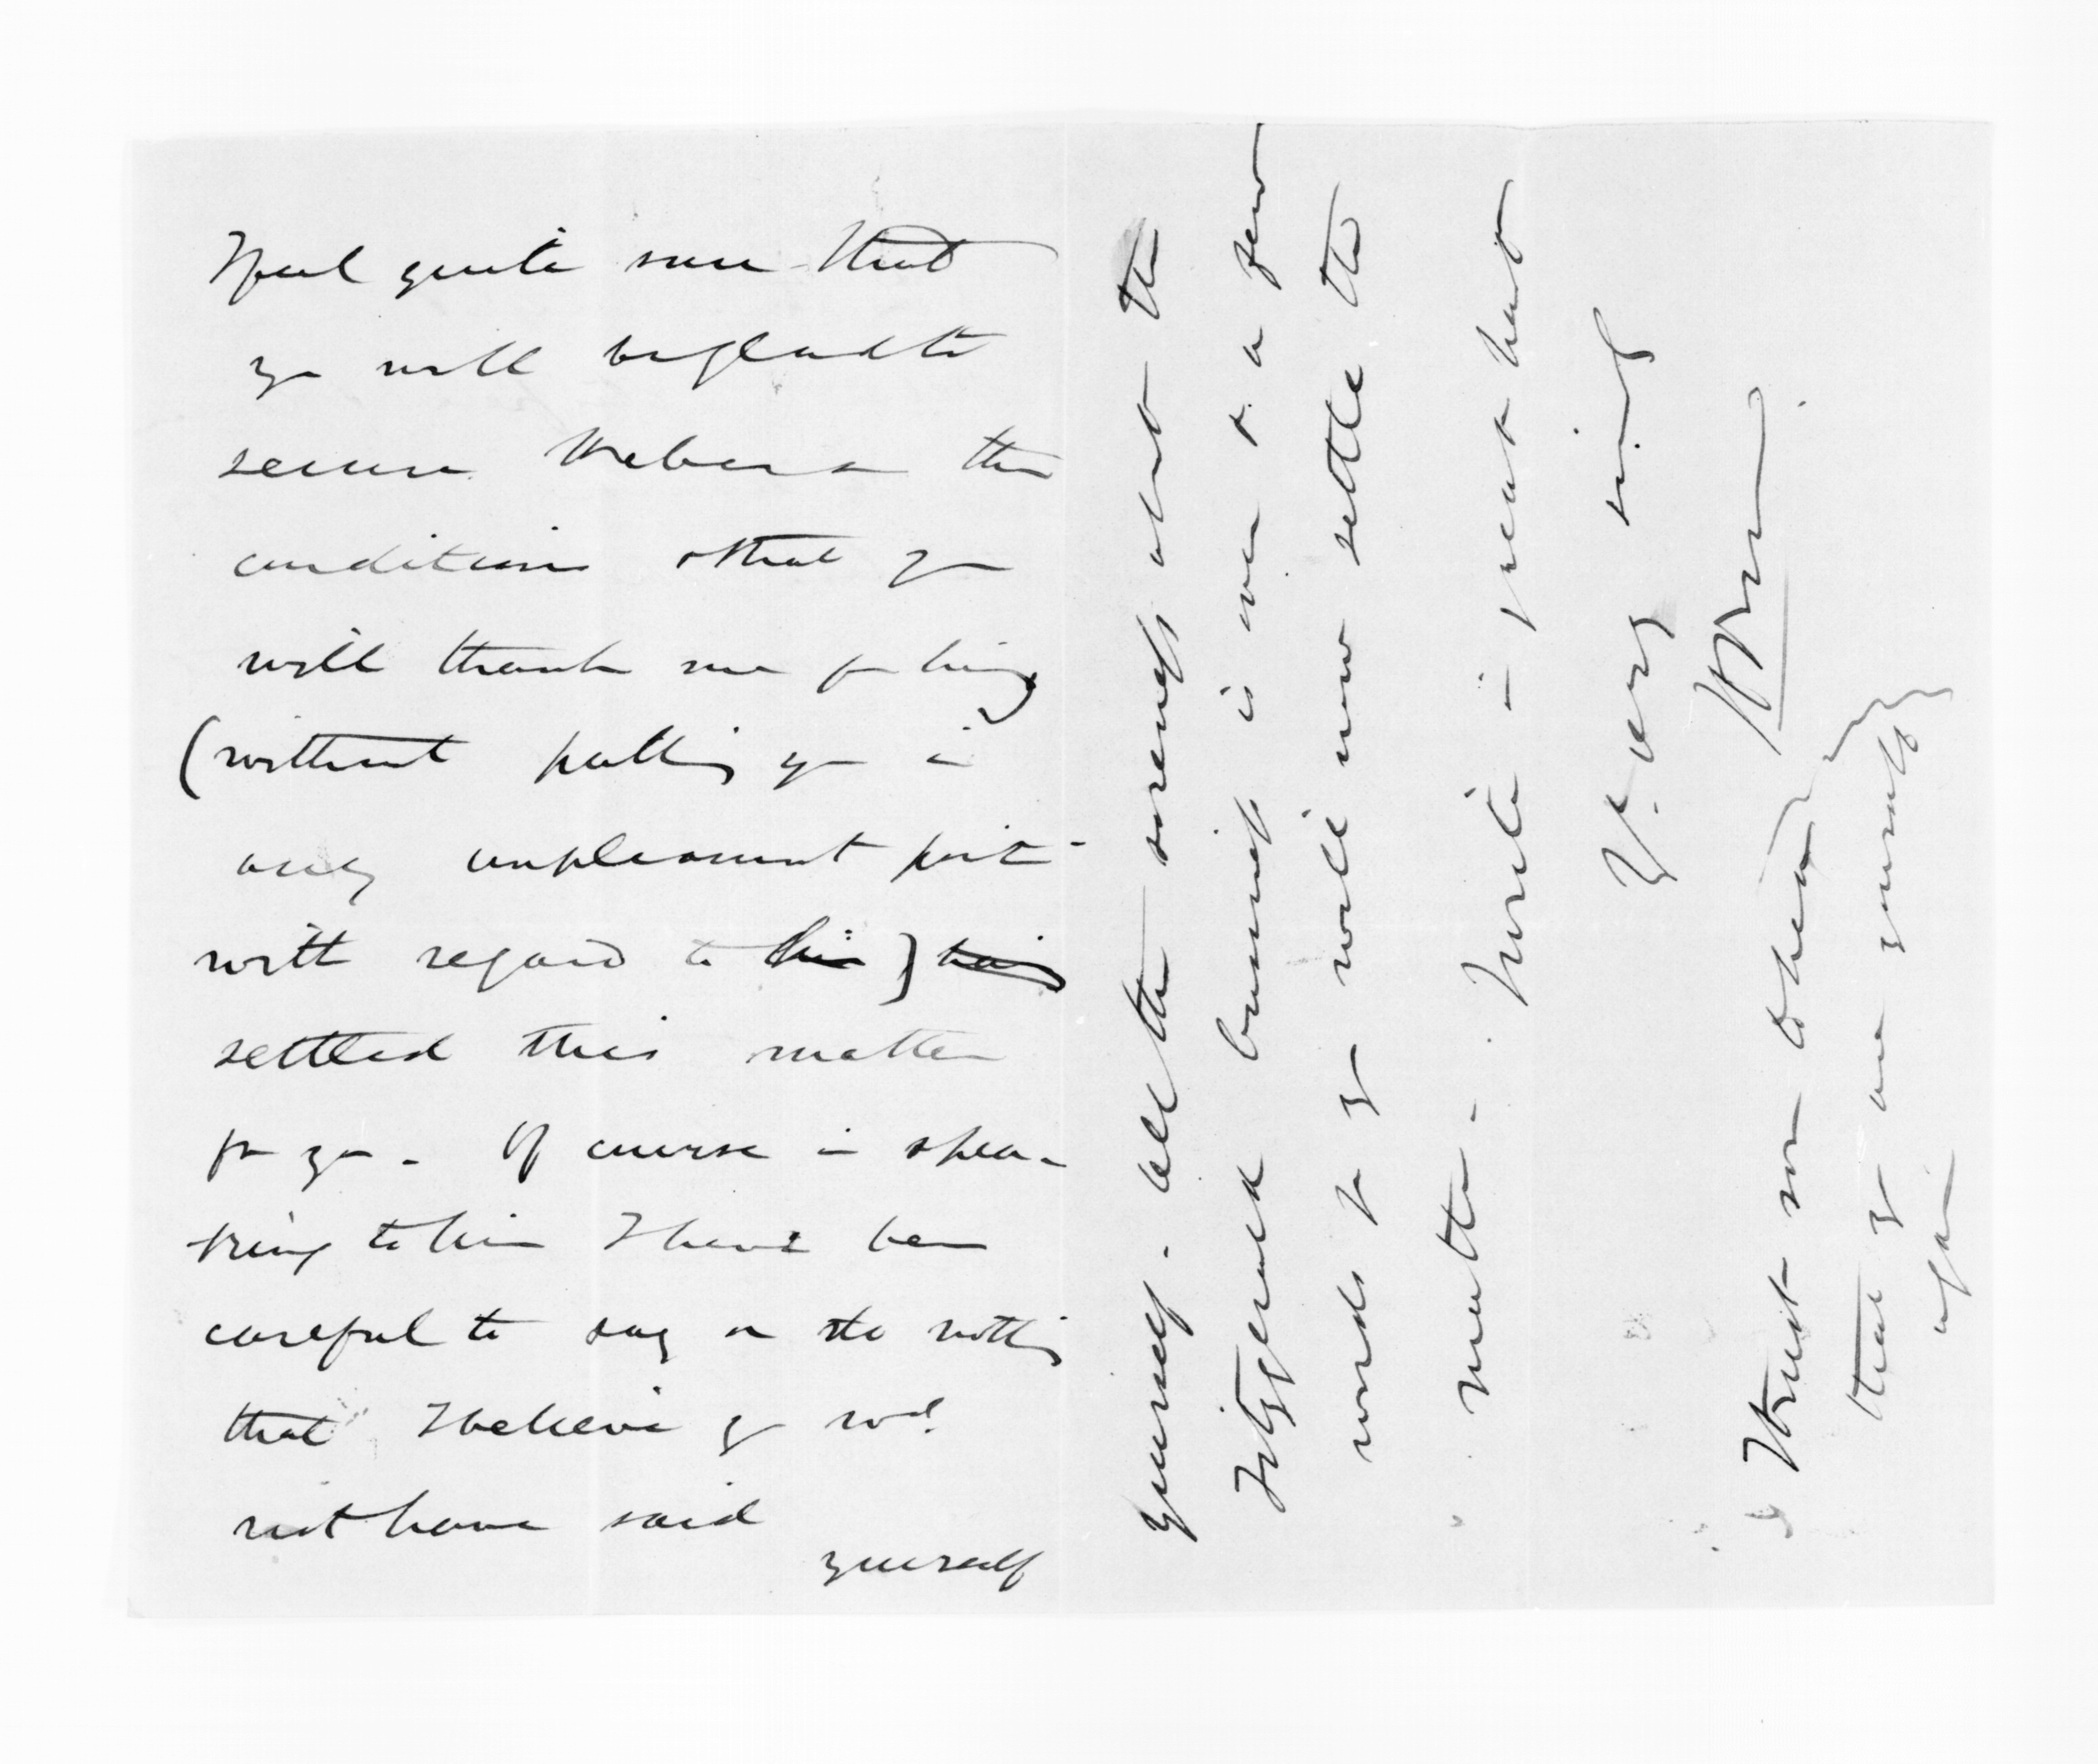 I feel quite sure that
you will be glad to
secure Weber on the
conditions & that you
will thank me for having
(without putting you in
any unpleasant posit-
with regard to him)
settled this matter
for you. Of course in spea-
king to him I have been
careful to say or do nothing
that I believe you wd.
not have said
yourself
yourself. All the soreness about the
Fitzgerald business is over & a few
words fr you will now settle the
matter. I write in great haste
Yr. very sincy
I trust soon to hear
that you are yourself
again